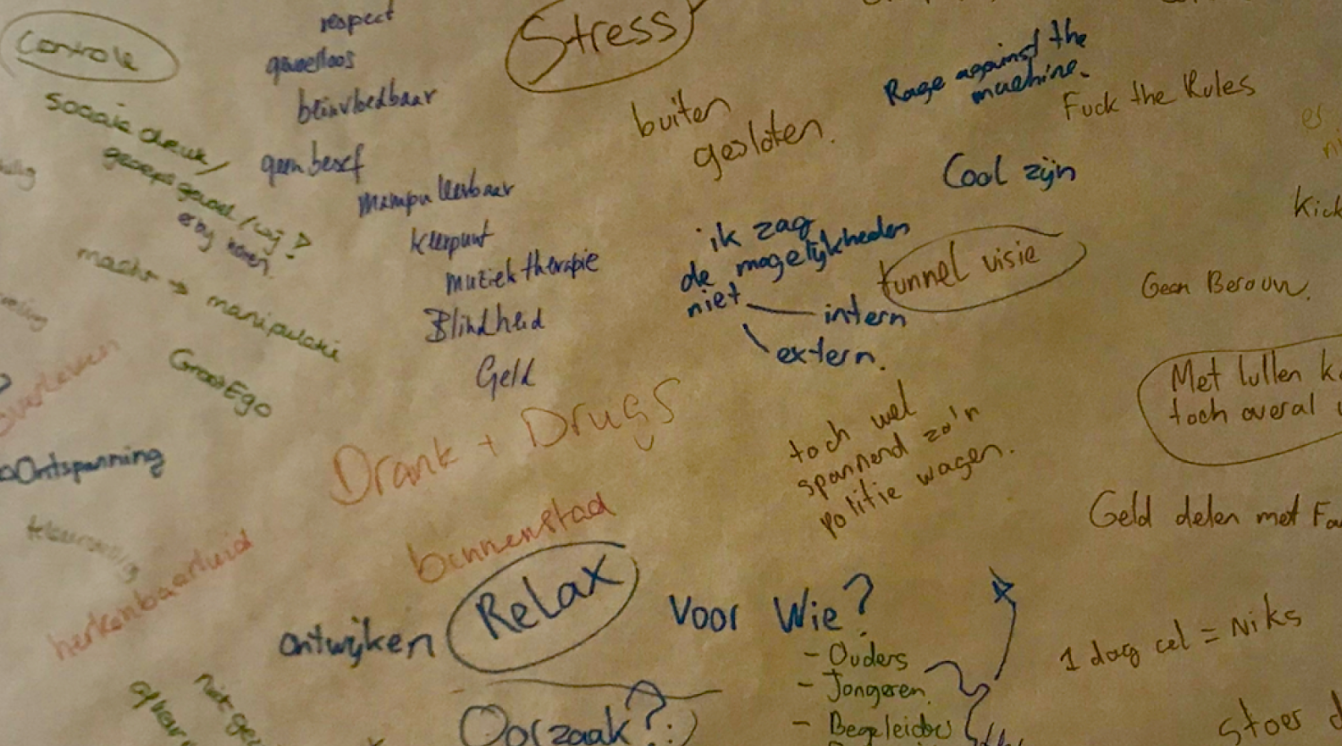 Controle
respect
gevoelloos
beïnvloedbaar
geen besef
Manipuleerbaar
Keerpunt
Muziektherapie
Blindheid
Geld
sociale druk/
groepsgevoel/wij?
macht → manipulatie
Groot Ego
overleven
Ontspanning
herkenbaarheid
Drank + Drugs
binnenstad
Stress
buiten
gesloten.
ik zag
de mogelijkheden
niet
intern
extern.
tunnel visie
Rage against the
machine.
Fuck the Rules
Cool zijn
Kick
Geen Berouw.
Met lullen k
toch overal
toch wel
spannend zo'n
politie wagen.
Geld delen met Fa
1 dag cel = Niks
stoer d
ontwijken
Relax
Voor Wie?
- Ouders
- Jongeren
- Begeleiders
Oorzaak?